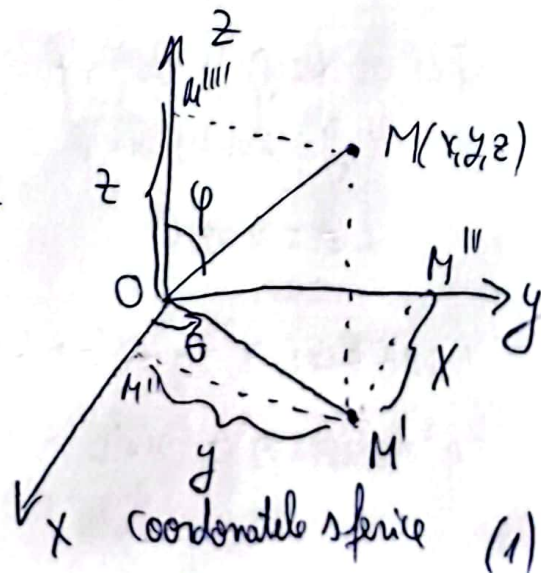 Z
M''''
M(x,y,z)
z
φ
M'''
O
y
θ
X
M''
y
M'
X
coordonatele sferice (1)